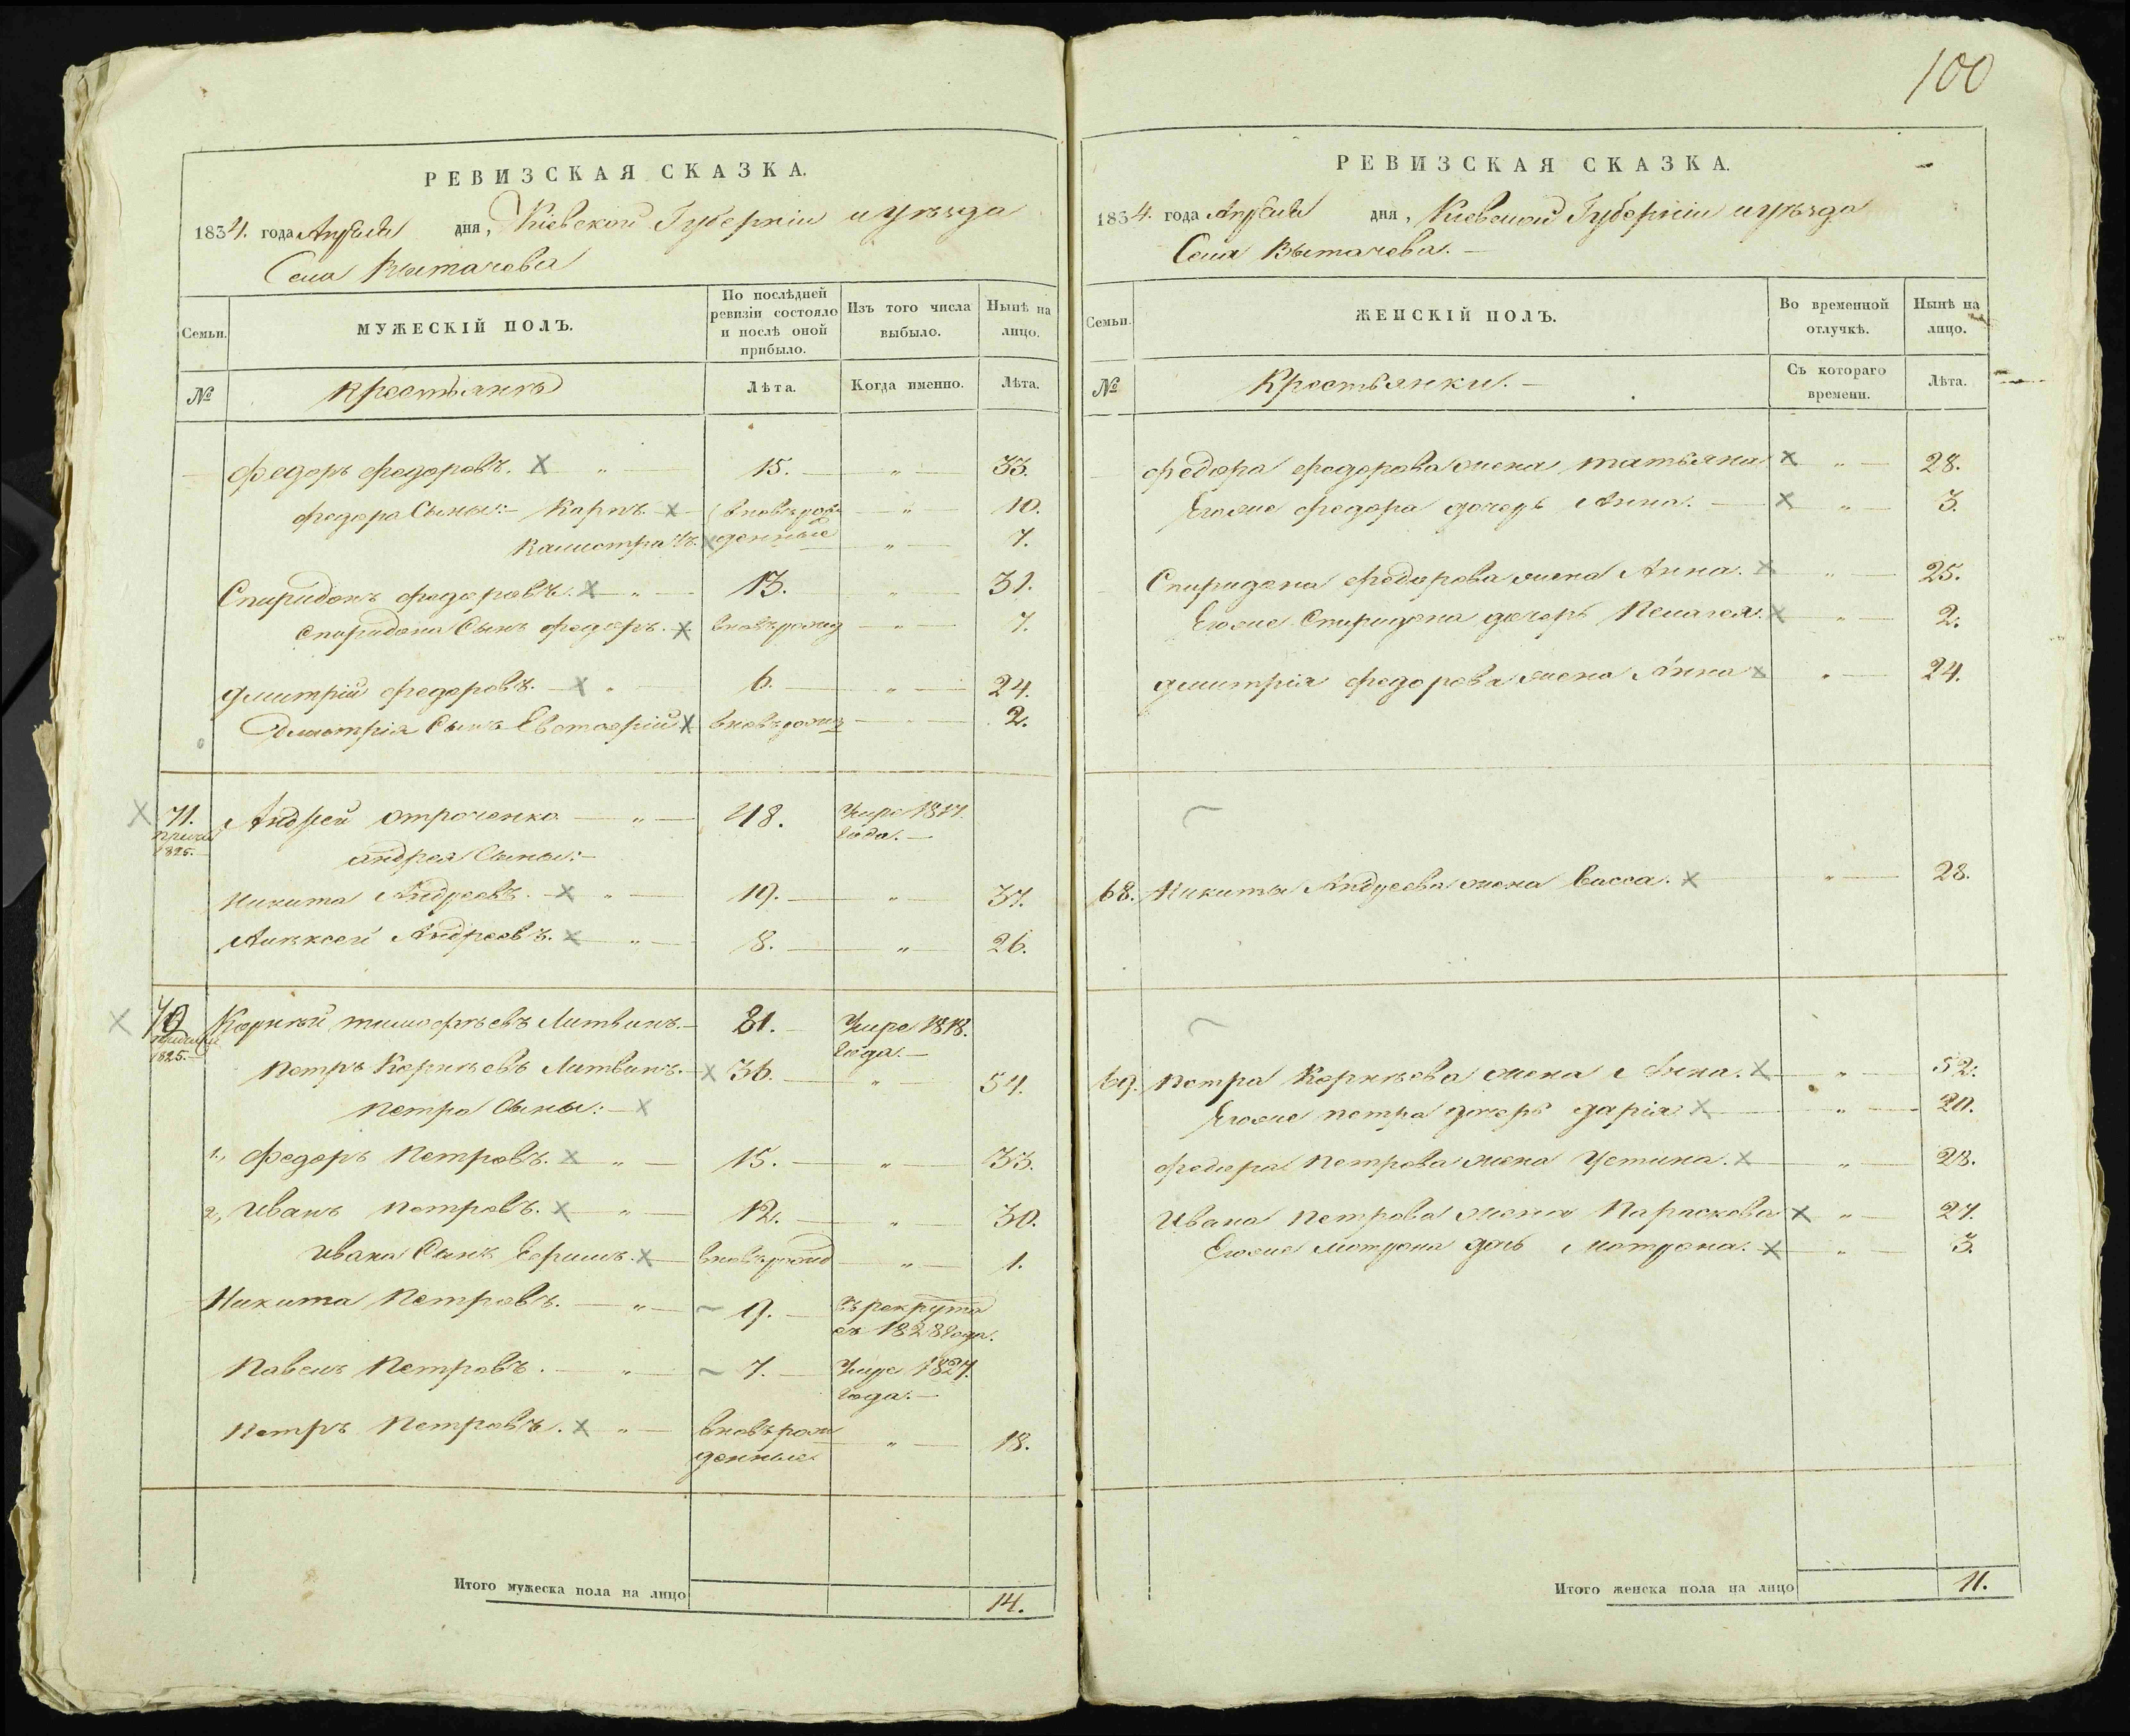 100
РЕВИЗСКАЯ СКАЗКА.
1834. года Апреля дня, Кіевской Губерніи и уѣзда
Села Вытачева
Семьи.
МУЖЕСКІЙ ПОЛЪ.
По послѣдней ревизіи состояло и послѣ оной прибыло.
Изъ того числа выбыло.
Нынѣ на лицо.
№
Крестьянъ
Лѣта.
Когда именно.
Лѣта.
Федоръ Федоровъ. 15. „ 33.
Федора Сыны: Карпъ вновьрож „ 10.
Калистратъ. денные „ 7.
Спиридонъ Федоровъ. „ 13. „ 31.
Спиридона Сынъ Федоръ. вновьрожд „ 7.
Дмитрій Федоровъ. „ 6. „ 24.
Дмитрія Сынъ Евстафій вновьрожд „ 2.
71. Андрей Отроченко „ 48. Умре 1817.
1825. года.
Андрея Сыны:
Никита Андреевъ. „ 19. „ 37.
Алексей Андреевъ. „ 8. „ 26.
Корнѣй Тимофѣевъ Литвинъ. 81. Умре 1818.
1825. года.
Петръ Корнѣевъ Литвинъ. 36. „ 54.
Петра Сыны:
1, Федоръ Петровъ. „ 15. „ 33.
2, Иванъ Петровъ. „ 12. „ 30.
Ивана Сынъ вновьрожд „ 1.
Никита Петровъ. „ 9. въ рекрути
съ 1828 года.
Павелъ Петровъ. „ 7. Умре 1827.
года.
Петръ Петровъ. „ вновьрож „ 18.
денные
Итого мужеска пола на лицо 14.
РЕВИЗСКАЯ СКАЗКА.
1834. года Апреля дня, Кіевской Губерніи и уѣзда
Села Вытачева.
Семьи.
ЖЕНСКІЙ ПОЛЪ.
Во временной отлучкѣ.
Нынѣ на лицо.
№
Крестьянки.
Съ котораго времени.
Лѣта.
Федора Федорова жена Татьяна „ 28.
Егоже Федора дочерь Анна. „ 3.
Спиридона Федорова жена Анна. „ 25.
Егоже Спиридона дочерь Пелагея. „ 2.
Дмитрія Федорова жена Анна „ 24.
68. Никиты Андреева жена Васса. „ 28.
69. Петра Корнѣева жена Анна. „ 52.
Егоже Петра дочерь Дарія „ 20.
Федора Петрова жена Устина. „ 28.
Ивана Петрова жена Параскова „ 27.
Егоже дочь Мотрона. „ 3.
Итого женска пола на лицо 11.